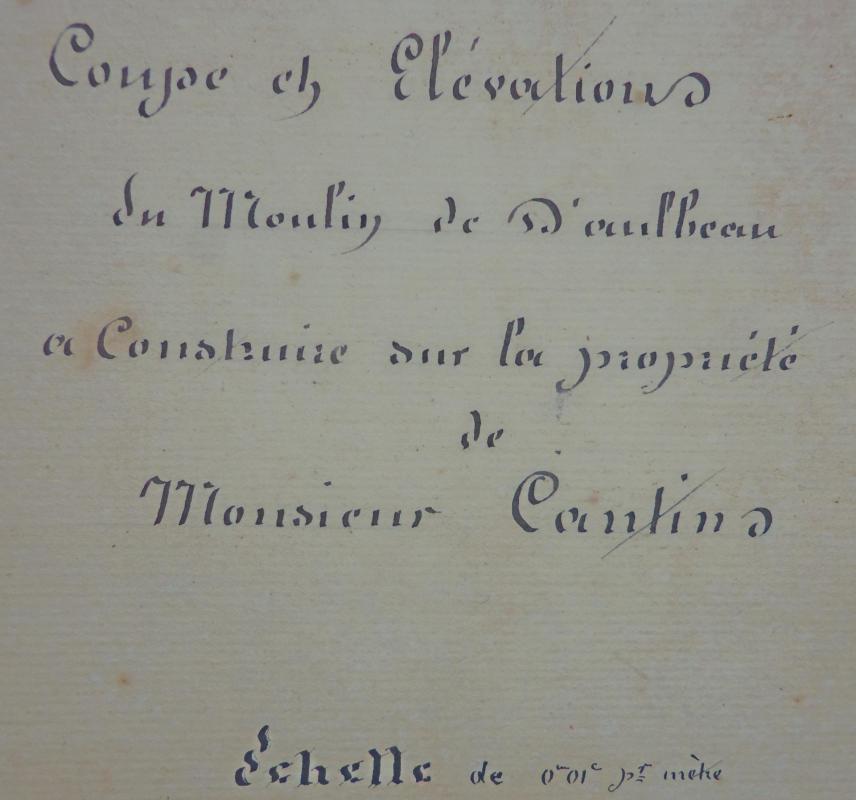 Coupe et Elévations
du Moulin de D'aulbeau
a Construire sur la propriété
de
Monsieur Cantins
Échelle de 0m01c pr mètre